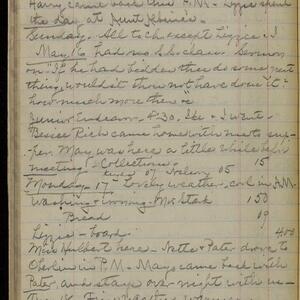 Harry came back this P.M. - Lizzie spent
the day at Aunt
Sunday. All to ch. except Lizzie. I
May, to had no S.S. class. Sermon
on "If he had bidden thee do some great
thing, wouldst thou not have done it"
how much more then"
Junior Endeavor 4.30. I went
Bessie Rich came home with me to sup-
per. May was here a little while before
meeting. Collections. 15
05
Monday 17" Lovely weather, cool in A.M.
Washing & ironing. Mrs. Stak 1 50
Bread 09
Lizzie - board. 4.00
Mrs. Hulbert here - Nette & Pater drove to
Oberlin in P.M. - Mays came back with
Pater and stays over night with us -